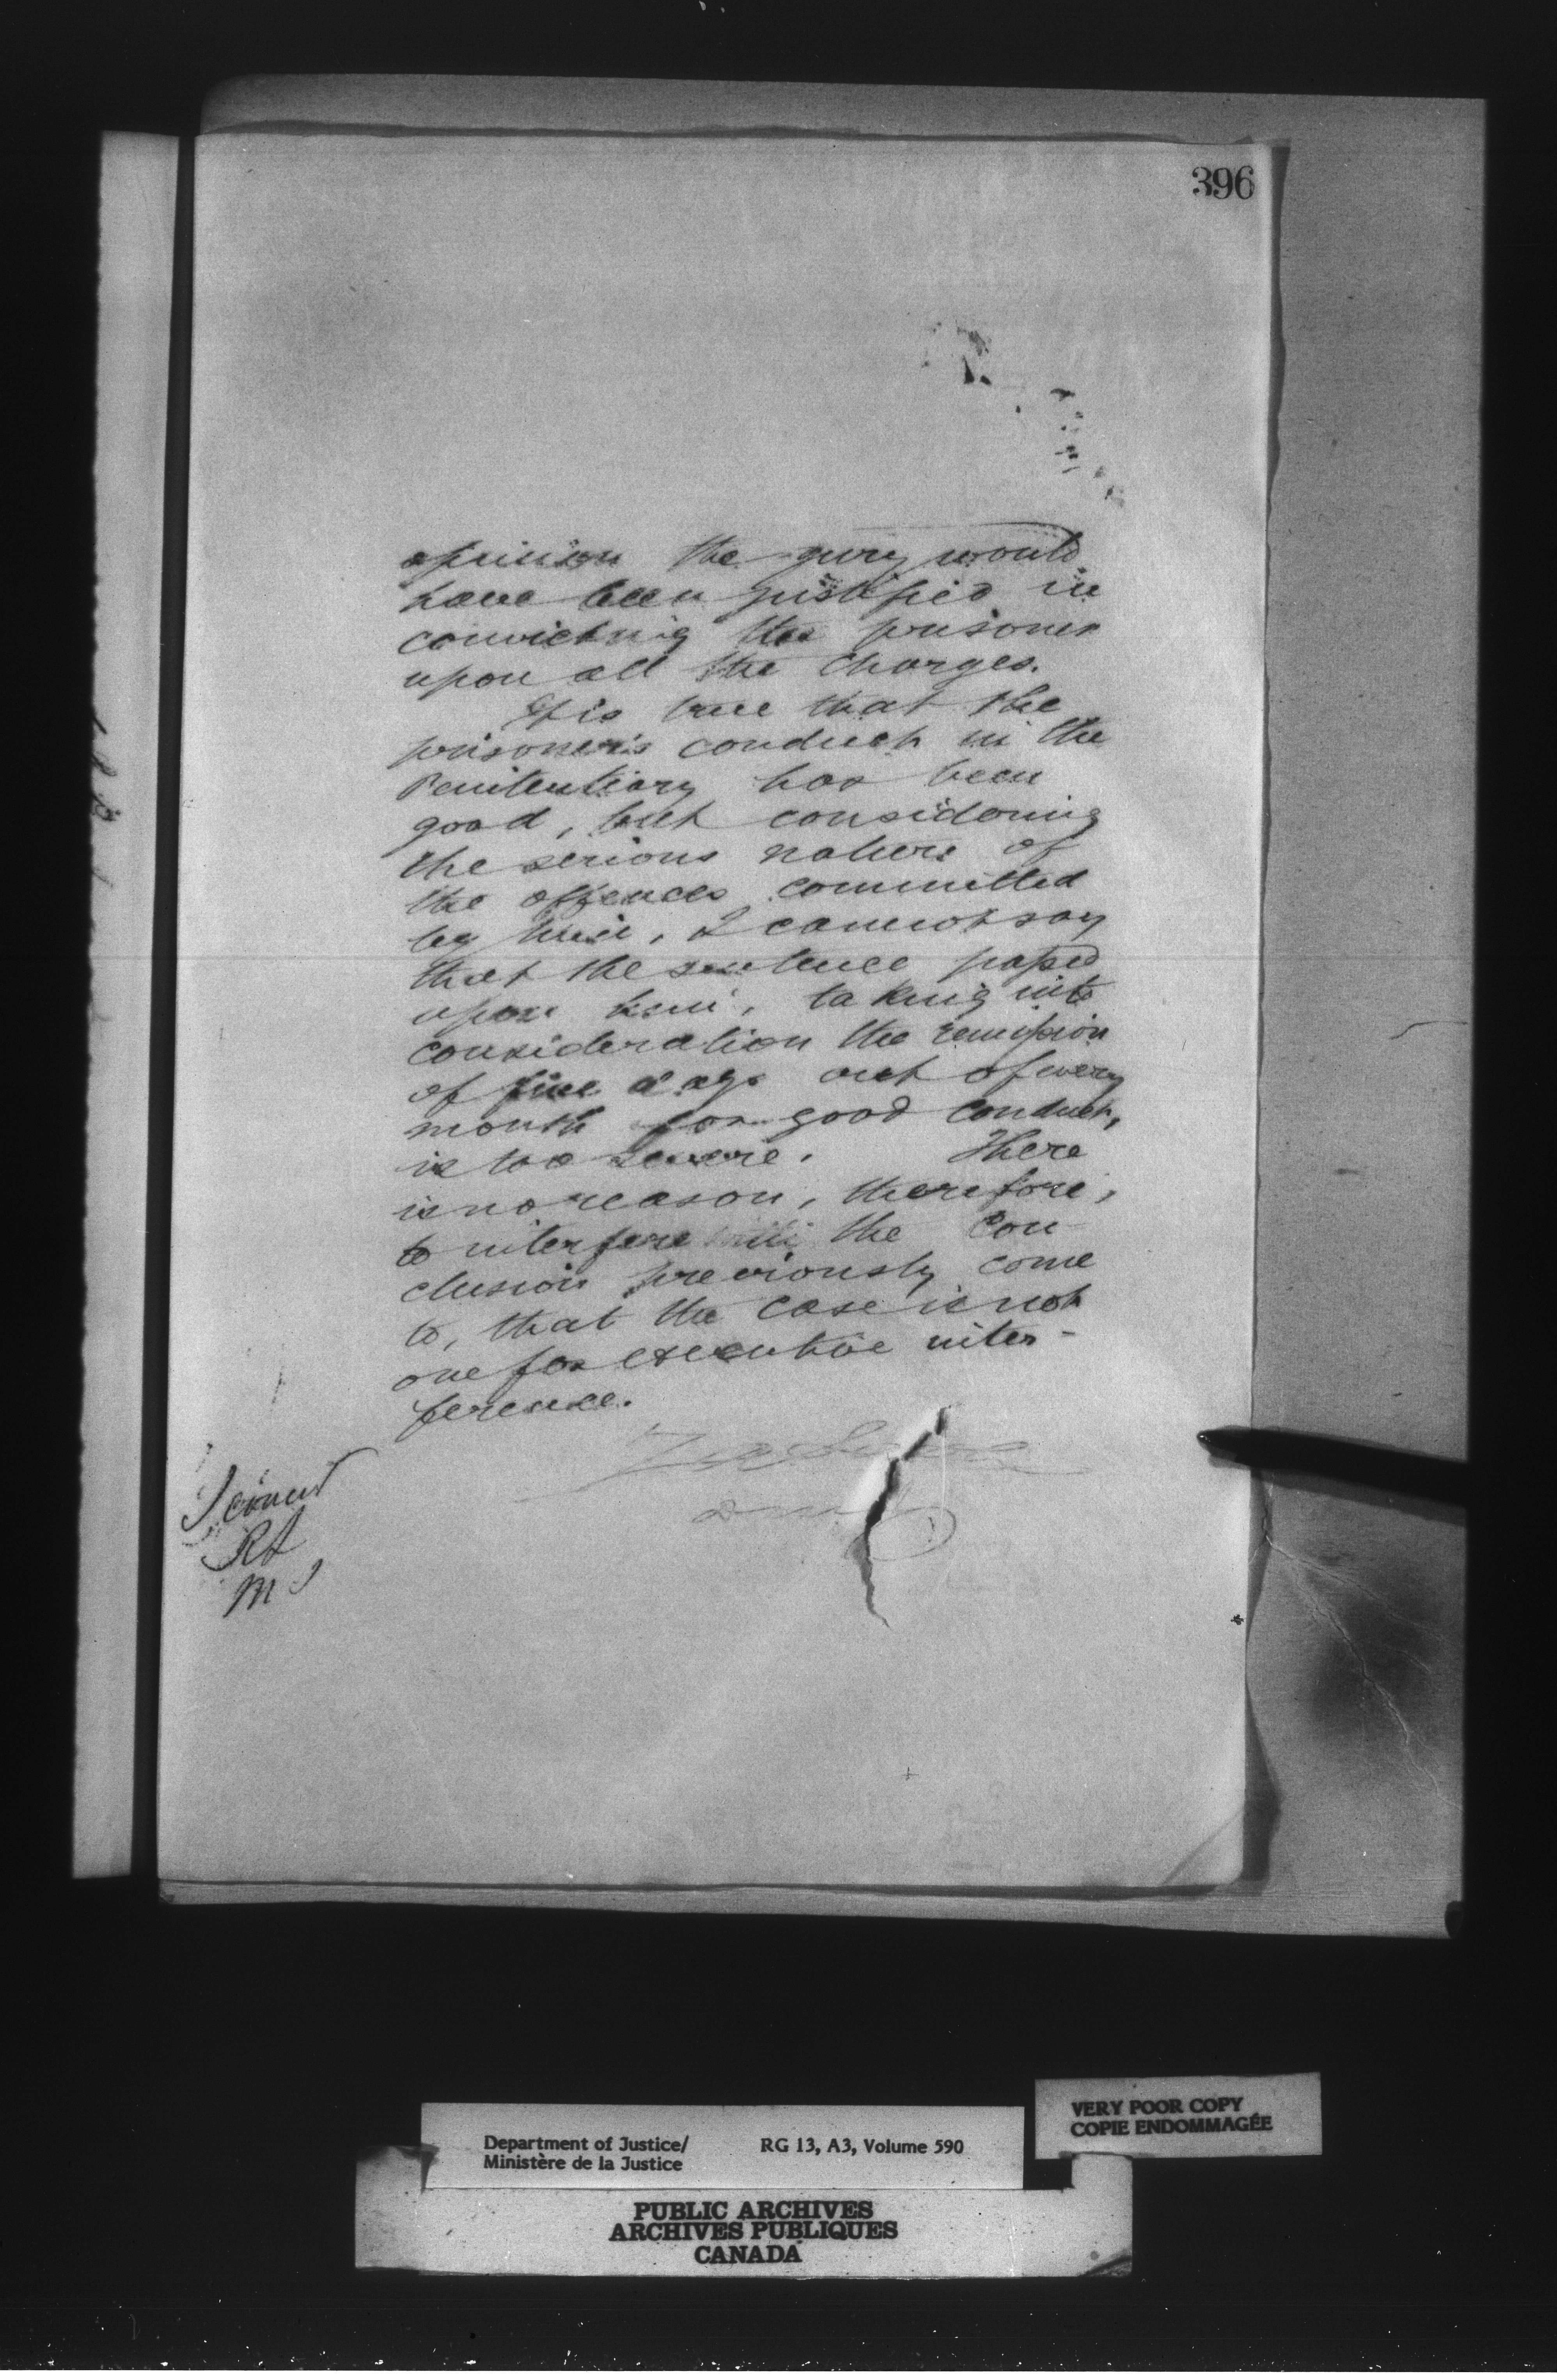 396
opinion the jury would
have been justified in
convicting the prisoner
upon all the charges.
It is true that the
prisoner's conduct in the
Penitentiary has been
good, but considering
the serious nature of
the offences committed
by him, I cannot say
that the sentence passed
upon him, taking into
consideration the remission
of five days out of every
month for good conduct,
is too severe. There
is no reason, therefore,
to interfere with the con-
clusion previously come
to, that the case is not
one for executive inter-
ference.
I concur
RL
MJ
VERY POOR COPY
COPIE ENDOMMAGÉE
Department of Justice/ RG 13, A3, Volume 590
Ministère de la Justice
PUBLIC ARCHIVES
ARCHIVES PUBLIQUES
CANADA